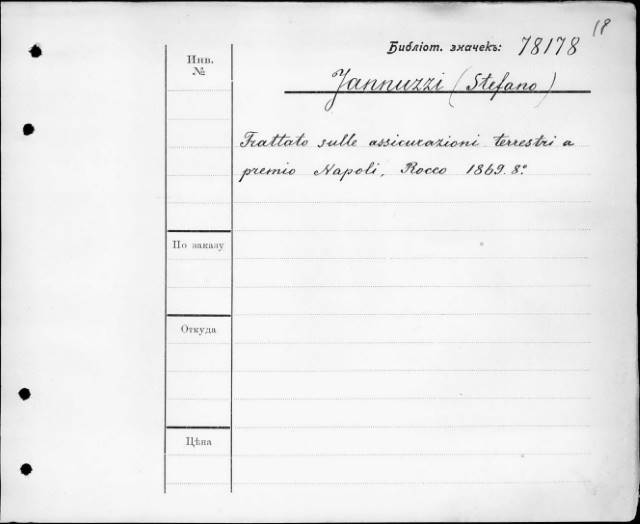 18
Библіот. значекъ: 78178
Инв.
№
Jannuzzi (Stefano)
Trattato sulle assicurazioni terrestri a
premio Napoli, Rocco 1869. 8º
По заказу
Откуда
Цѣна